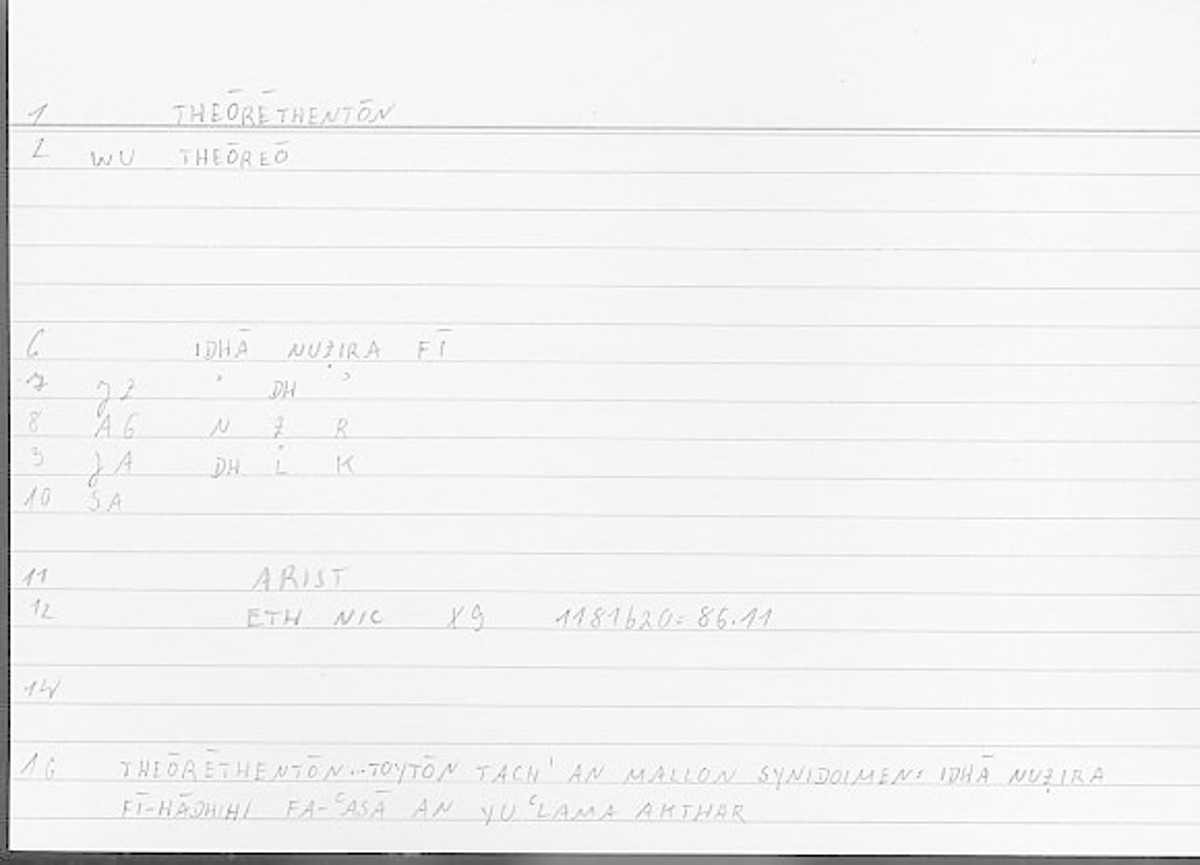 1 THEŌRĒTHENTŌN
2 WU THEŌREŌ
6 IDHĀ NUẒIRA FĪ
7 JZ ʾ DH ʾ
8 AG N Ẓ R
9 JA DH L K
10 SA
11 ARIST
12 ETH NIC X9 1181b20 = 86.11
14
16 THEŌRĒTHENTŌN..TOYTŌN TACH' AN MALLON SYNIDOIMEN: IDHĀ NUẒIRA
FĪ-HĀDHIHI FA-ʿASĀ AN YUʿLAMA AKTHAR